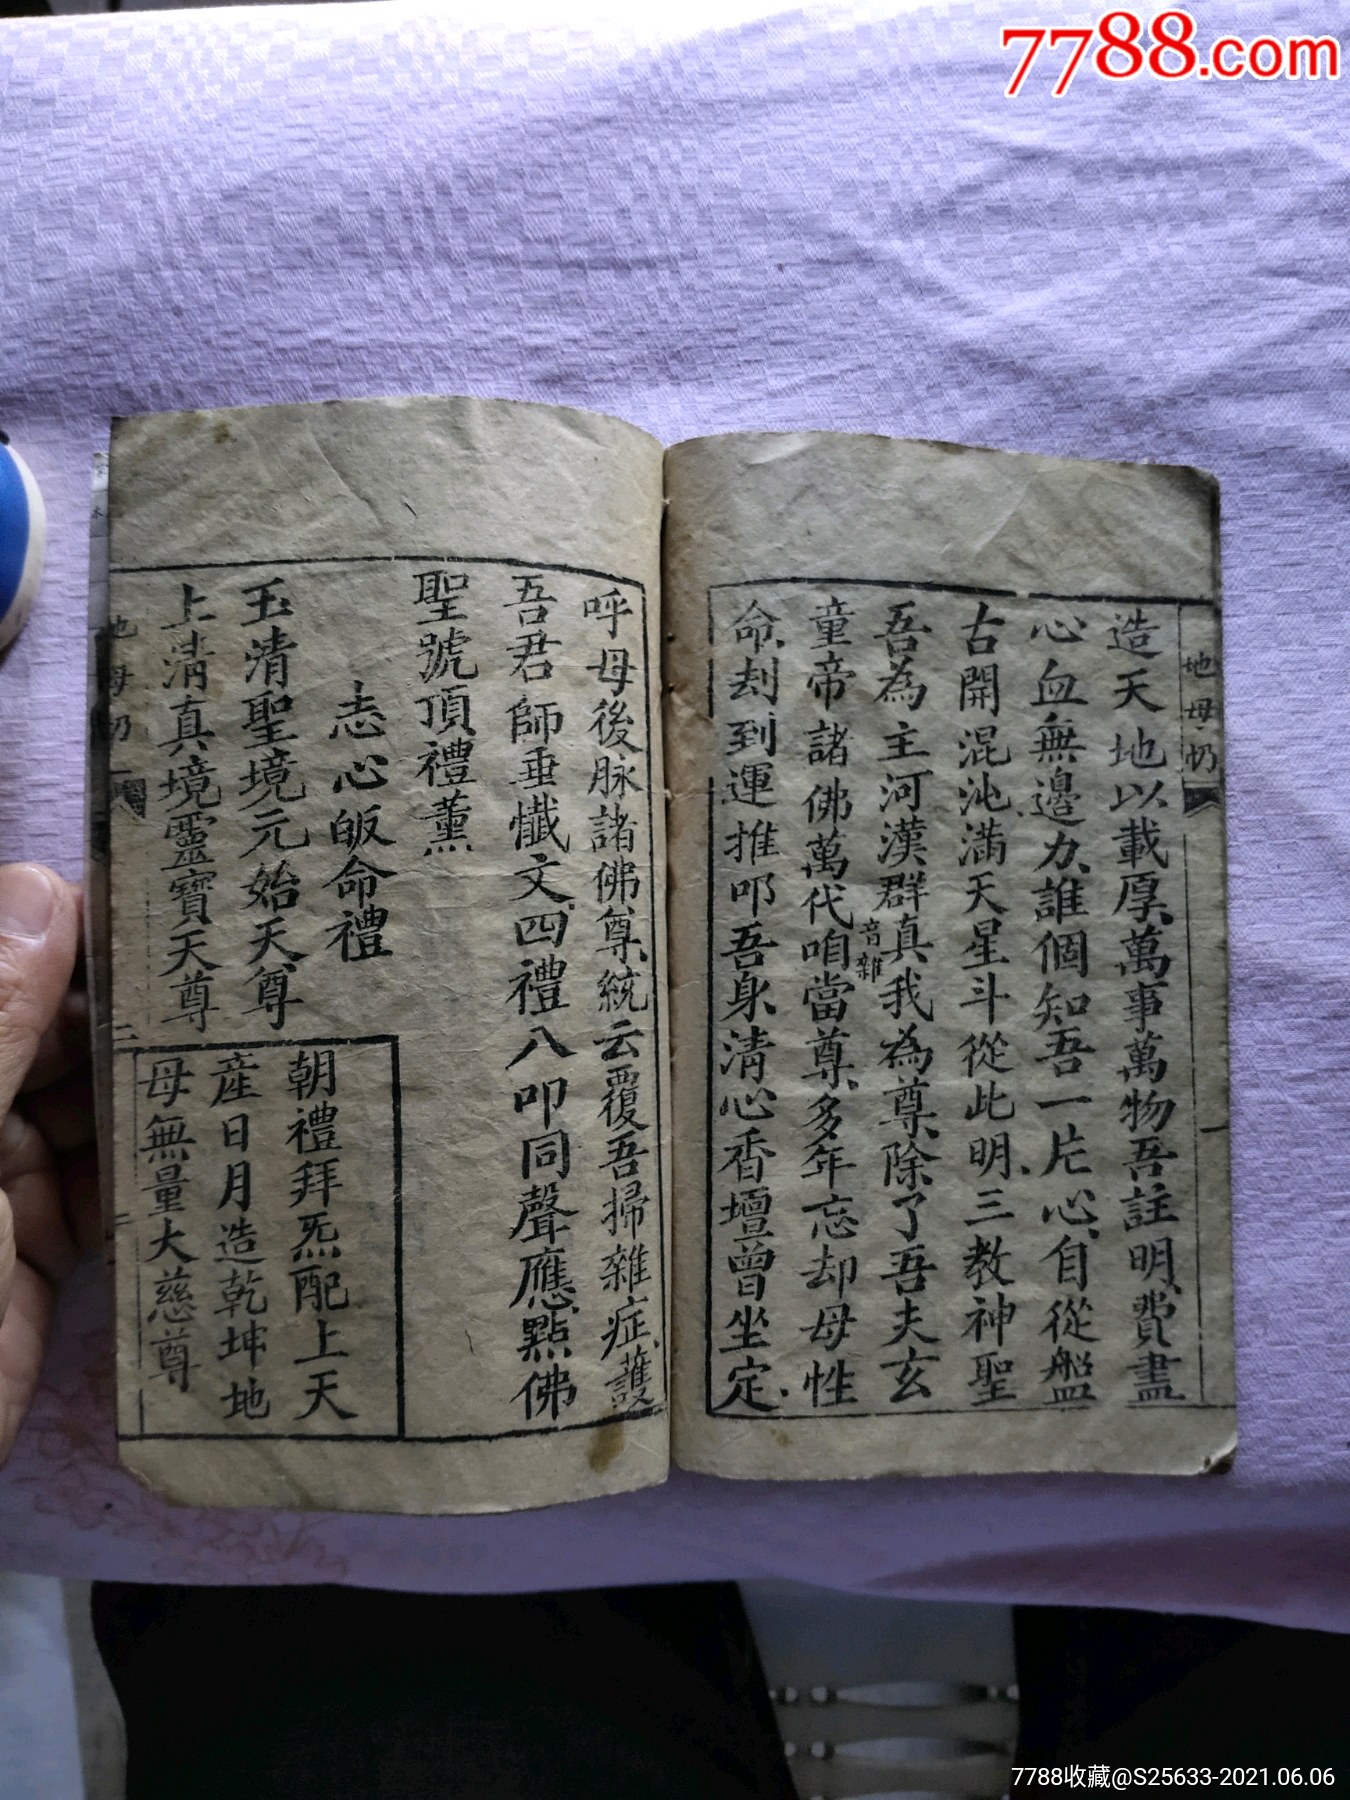 7788.com
地母忏
造天地以載厚、萬事萬物吾註明、費盡
心血無邊力、誰個知吾一片心、自從盤
古開混沌、滿天星斗從此明、三教神聖
吾為主河漢群真我為尊、除了吾夫玄
童帝諸佛萬代咱音雜當尊、多年忘却母性
命、刦到運推叩吾身清心香壇曾坐定、
呼母後脉諸佛尊、統云覆吾掃雜症、護
吾君師垂懺文、四禮八叩同聲應、點佛
聖號頂禮薰
志心皈命禮
玉清聖境元始天尊
上清真境靈寶天尊
朝禮拜炁配上天
産日月造乾坤地
母無量大慈尊
地母
二
7788收藏@S25633-2021.06.06